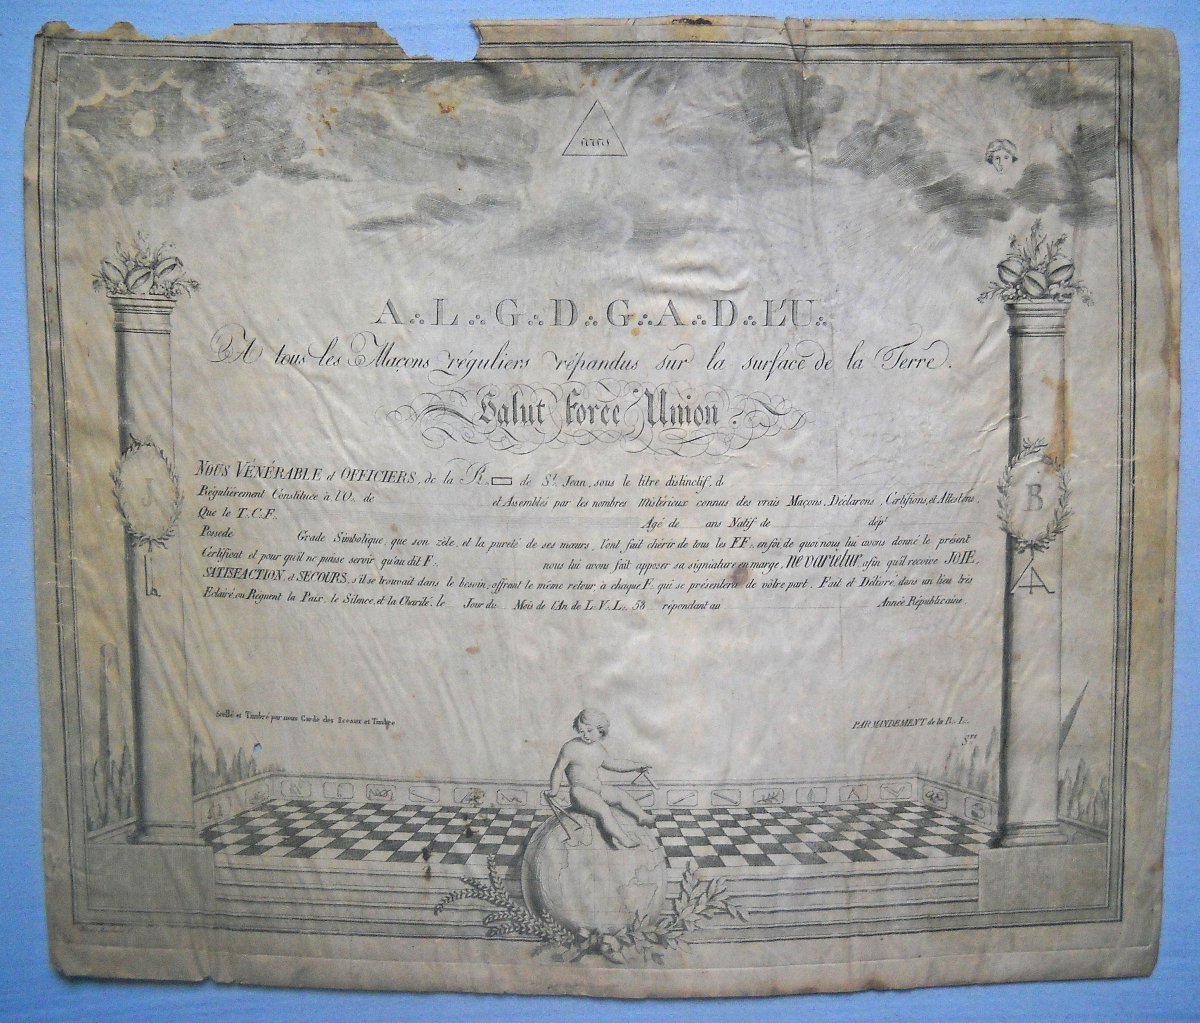 A∴L∴G∴D∴G∴A∴D∴L'U∴
A tous les Maçons réguliers répandus sur la surface de la Terre.
Salut Force Union.
J
B
NOUS VÉNÉRABLE et OFFICIERS, de la R∴ ▭ de St. Jean, sous le titre distinctif, d
Régulièrement Constituée à l'O∴ de et Assemblés par les nombres Mistérieux connus des vrais Maçons, Déclarons, Certifions, et Attestons,
Que le T.C.F∴ Agé de ans Natif de dépt
Possede Grade Simbolique, que son zèle, et la pureté de ses mœurs, l'ont fait chérir de tous les FF∴ enfin de quoi nous lui avons donné le présent
Certificat et pour qu'il ne puisse servir qu'au dit F∴ nous lui avons fait apposer sa signiature en marge, ne varietur, afin qu'il recoive JOIE,
SATISFACTION, et SECOURS, s'il se trouvait dans le besoin, offrant le même retour à chaque F∴ qui se présentera de vôtre part, Fait et Délivré, dans un lieu très
Eclairé, ou Régnent la Paix, le Silence, et la Charité, le Jour du Mois de l'An de L∴V∴L∴ 58 répondant au Année Républicaine.
Scellé et Timbré par nous Garde des Sceaux et Timbre
PAR MANDEMENT de la R∴L∴
Sre